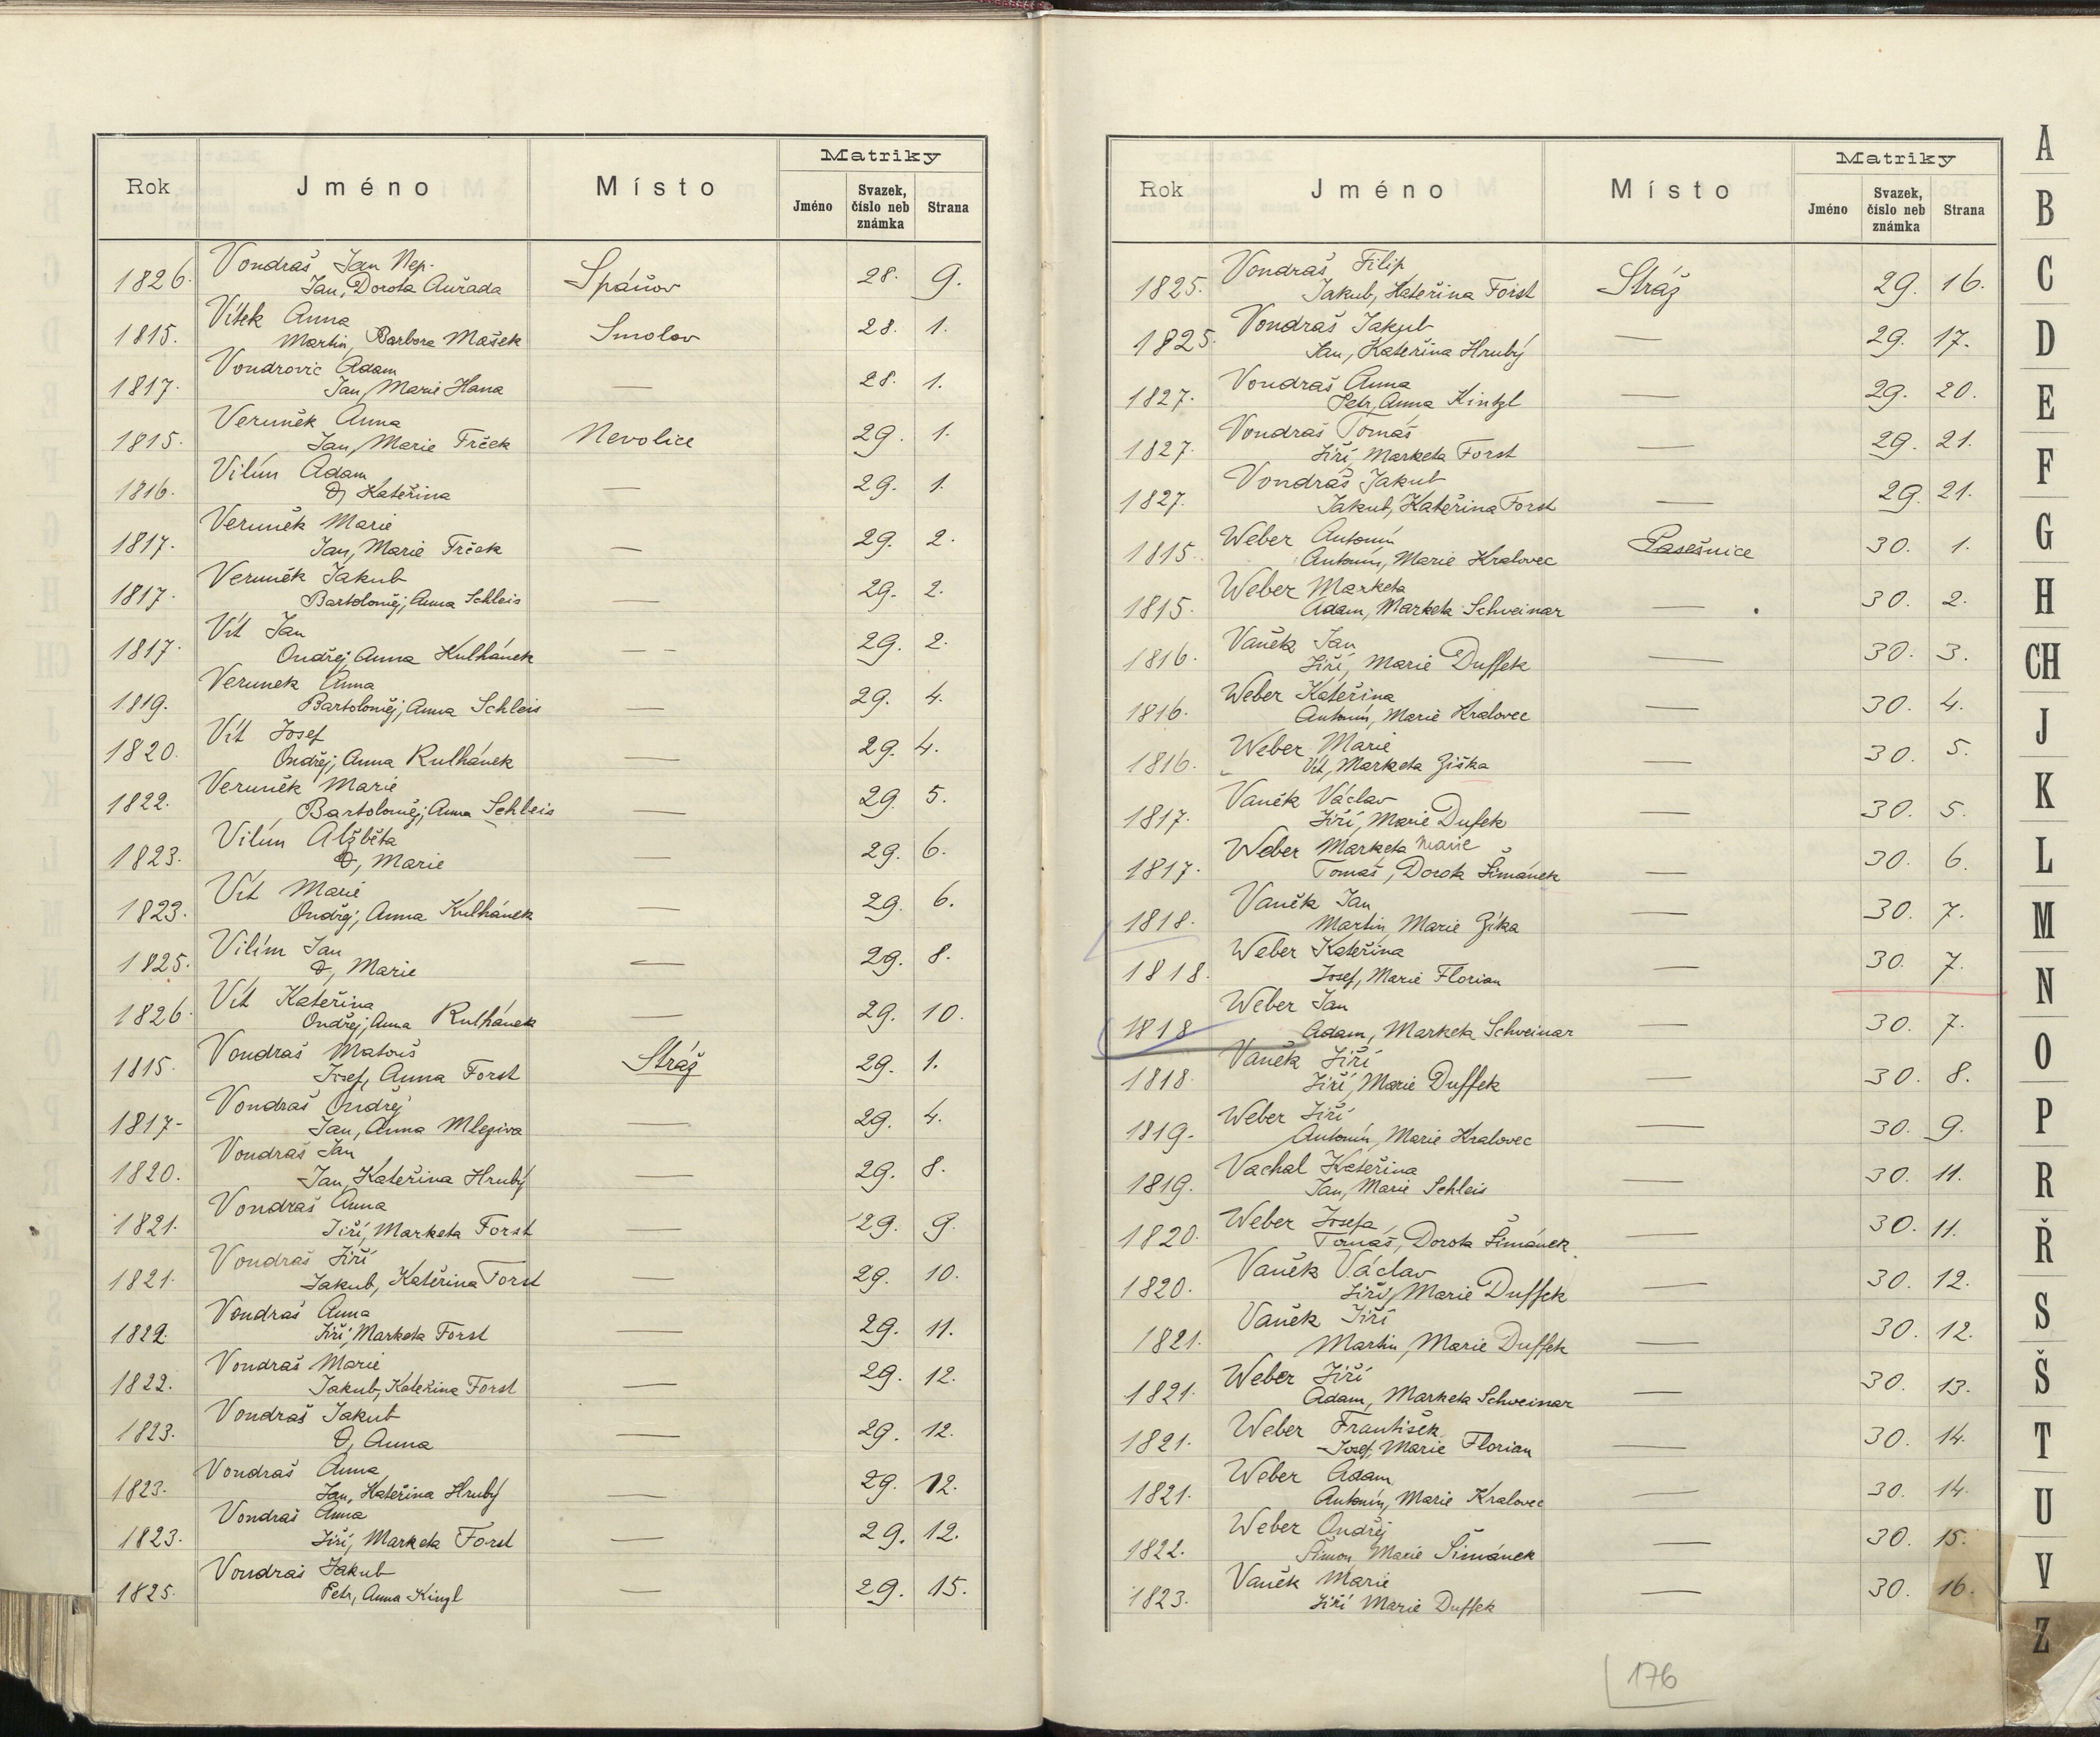 Rok Jméno Místo Matriky
Jméno Svazek, číslo neb známka Strana
Vondraš Jan Nep.
1826. Jan, Dorota Auřada Spáňov 28. 9.
Vítek Anna
1815. Martin, Barbora Mašek Smolov 28. 1.
Vondrovic Adam
1817. Jan, Marie Hana — 28. 1.
Veruněk Anna
1815. Jan, Marie Frček Nevolice 29. 1.
Vilím Adam
1816. Kateřina — 29. 1.
Veruněk Marie
1817. Jan, Marie Frček — 29. 2.
Veruněk Jakub
1817. Bartoloměj, Anna Schleis — 29. 2.
Vít Jan
1817. Ondřej, Anna Kulhánek — - 29. 2.
Verunek Anna
1819. Bartoloměj, Anna Schleis — 29. 4.
Vít Josef
1820. Ondřej, Anna Kulhánek — 29. 4.
Veruněk Marie
1822. Bartoloměj, Anna Schleis — 29. 5.
Vilím Alžběta
1823. Marie — 29. 6.
Vít Marie
1823. Ondřej, Anna Kulhánek — 29. 6.
Vilím Jan
1825. Marie — 29. 8.
Vít Kateřina
1826. Ondřej, Anna Kulhánek — 29. 10.
Vondraš Matouš
1815. Josef, Anna Forst Stráž 29. 1.
Vondraš Ondřej
1817- Jan, Anna Mleziva — 29. 4.
Vondraš Jan
1820. Jan, Kateřina Hrubý — 29. 8.
Vondraš Anna
1821. Jiří, Marketa Forst — 29. 9.
Vondraš Jiří
1821. Jakub, Kateřina Forst — 29. 10.
Vondraš Anna
1822. Jiří, Marketa Forst — 29. 11.
Vondraš Marie
1822. Jakub, Kateřina Forst — 29. 12.
Vondraš Jakub
1823. Anna — 29. 12.
Vondraš Anna
1823. Jan, Kateřina Hrubý — 29. 12.
Vondraš Anna
1823. Jiří, Marketa Forst — 29. 12.
Vondraš Jakub
1825. Petr, Anna Kinzl — 29. 15.
Rok Jméno Místo Matriky
Jméno Svazek, číslo neb známka Strana
Vondraš Filip
1825. Jakub, Kateřina Forst Stráž 29. 16.
Vondraš Jakub
1825. Jan, Kateřina Hrubý — 29. 17.
Vondraš Anna
1827. Petr, Anna Kintzl — 29. 20.
Vondraš Tomáš
1827. Jiří, Marketa Forst — 29. 21.
Vondraš Jakub
1827. Jakub, Kateřina Forst — 29. 21.
Weber Antonín
1815. Antonín, Marie Kralovec Pasešnice 30. 1.
Weber Marketa
1815. Adam, Marketa Schveinar — 30. 2.
Vaněk Jan
1816. Jiří, Marie Duffek — 30. 3.
Weber Kateřina
1816. Antonín, Marie Kralovec — 30. 4.
Weber Marie
1816. Vít, Marketa Ziška — 30. 5.
Vaněk Václav
1817. Jiří, Marie Dufek — 30. 5.
Weber Marketa Marie
1817. Tomáš, Dorota Šimánek — 30. 6.
Vaněk Jan
1818. Martin, Marie Zíka — 30. 7.
Weber Kateřina
1818. Josef, Marie Florian — 30. 7.
Weber Jan
1818 Adam, Marketa Schveinar — 30. 7.
Vaněk Jiří
1818. Jiří, Marie Duffek — 30. 8.
Weber Jiří
1819. Antonín, Marie Kralovec — 30. 9.
Vachal Kateřina
1819. Jan, Marie Schleis — 30. 11.
Weber Josefa
1820. Tomáš, Dorota Šimánek — 30. 11.
Vaněk Václav
1820. Jiří, Marie Duffek — 30. 12.
Vaněk Jiří
1821. Martin, Marie Duffek — 30. 12.
Weber Jiří
1821. Adam, Marketa Schveinar — 30. 13.
Weber František
1821. Josef, Marie Florian — 30. 14.
Weber Adam
1821. Antonín, Marie Kralovec — 30. 14.
Weber Ondřej
1822. Šimon, Marie Šimánek — 30. 15.
Vaněk Marie
1823. Jiří Marie Duffek — 30. 16.
176
A
B
C
D
E
F
G
H
CH
J
K
L
M
N
O
P
R
Ř
S
Š
T
U
V
Z